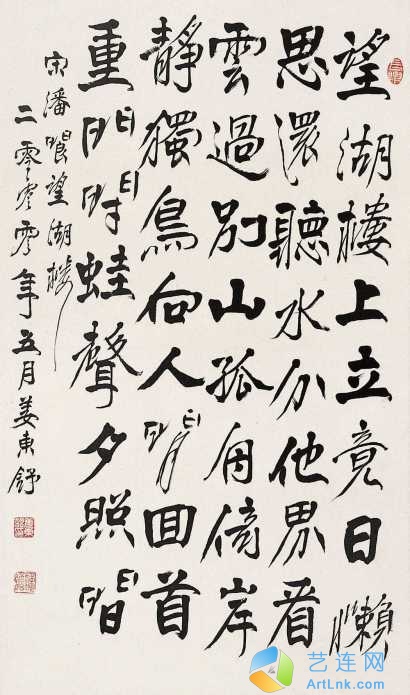 望湖樓上立竟日懶
思還聽水分他界看
雲過別山孤舟倚岸
靜獨鳥向人閒回首
重門閉蛙聲夕照間
宋潘閬望湖樓
二零零零年五月姜東舒
艺连网
ArtLnk.com